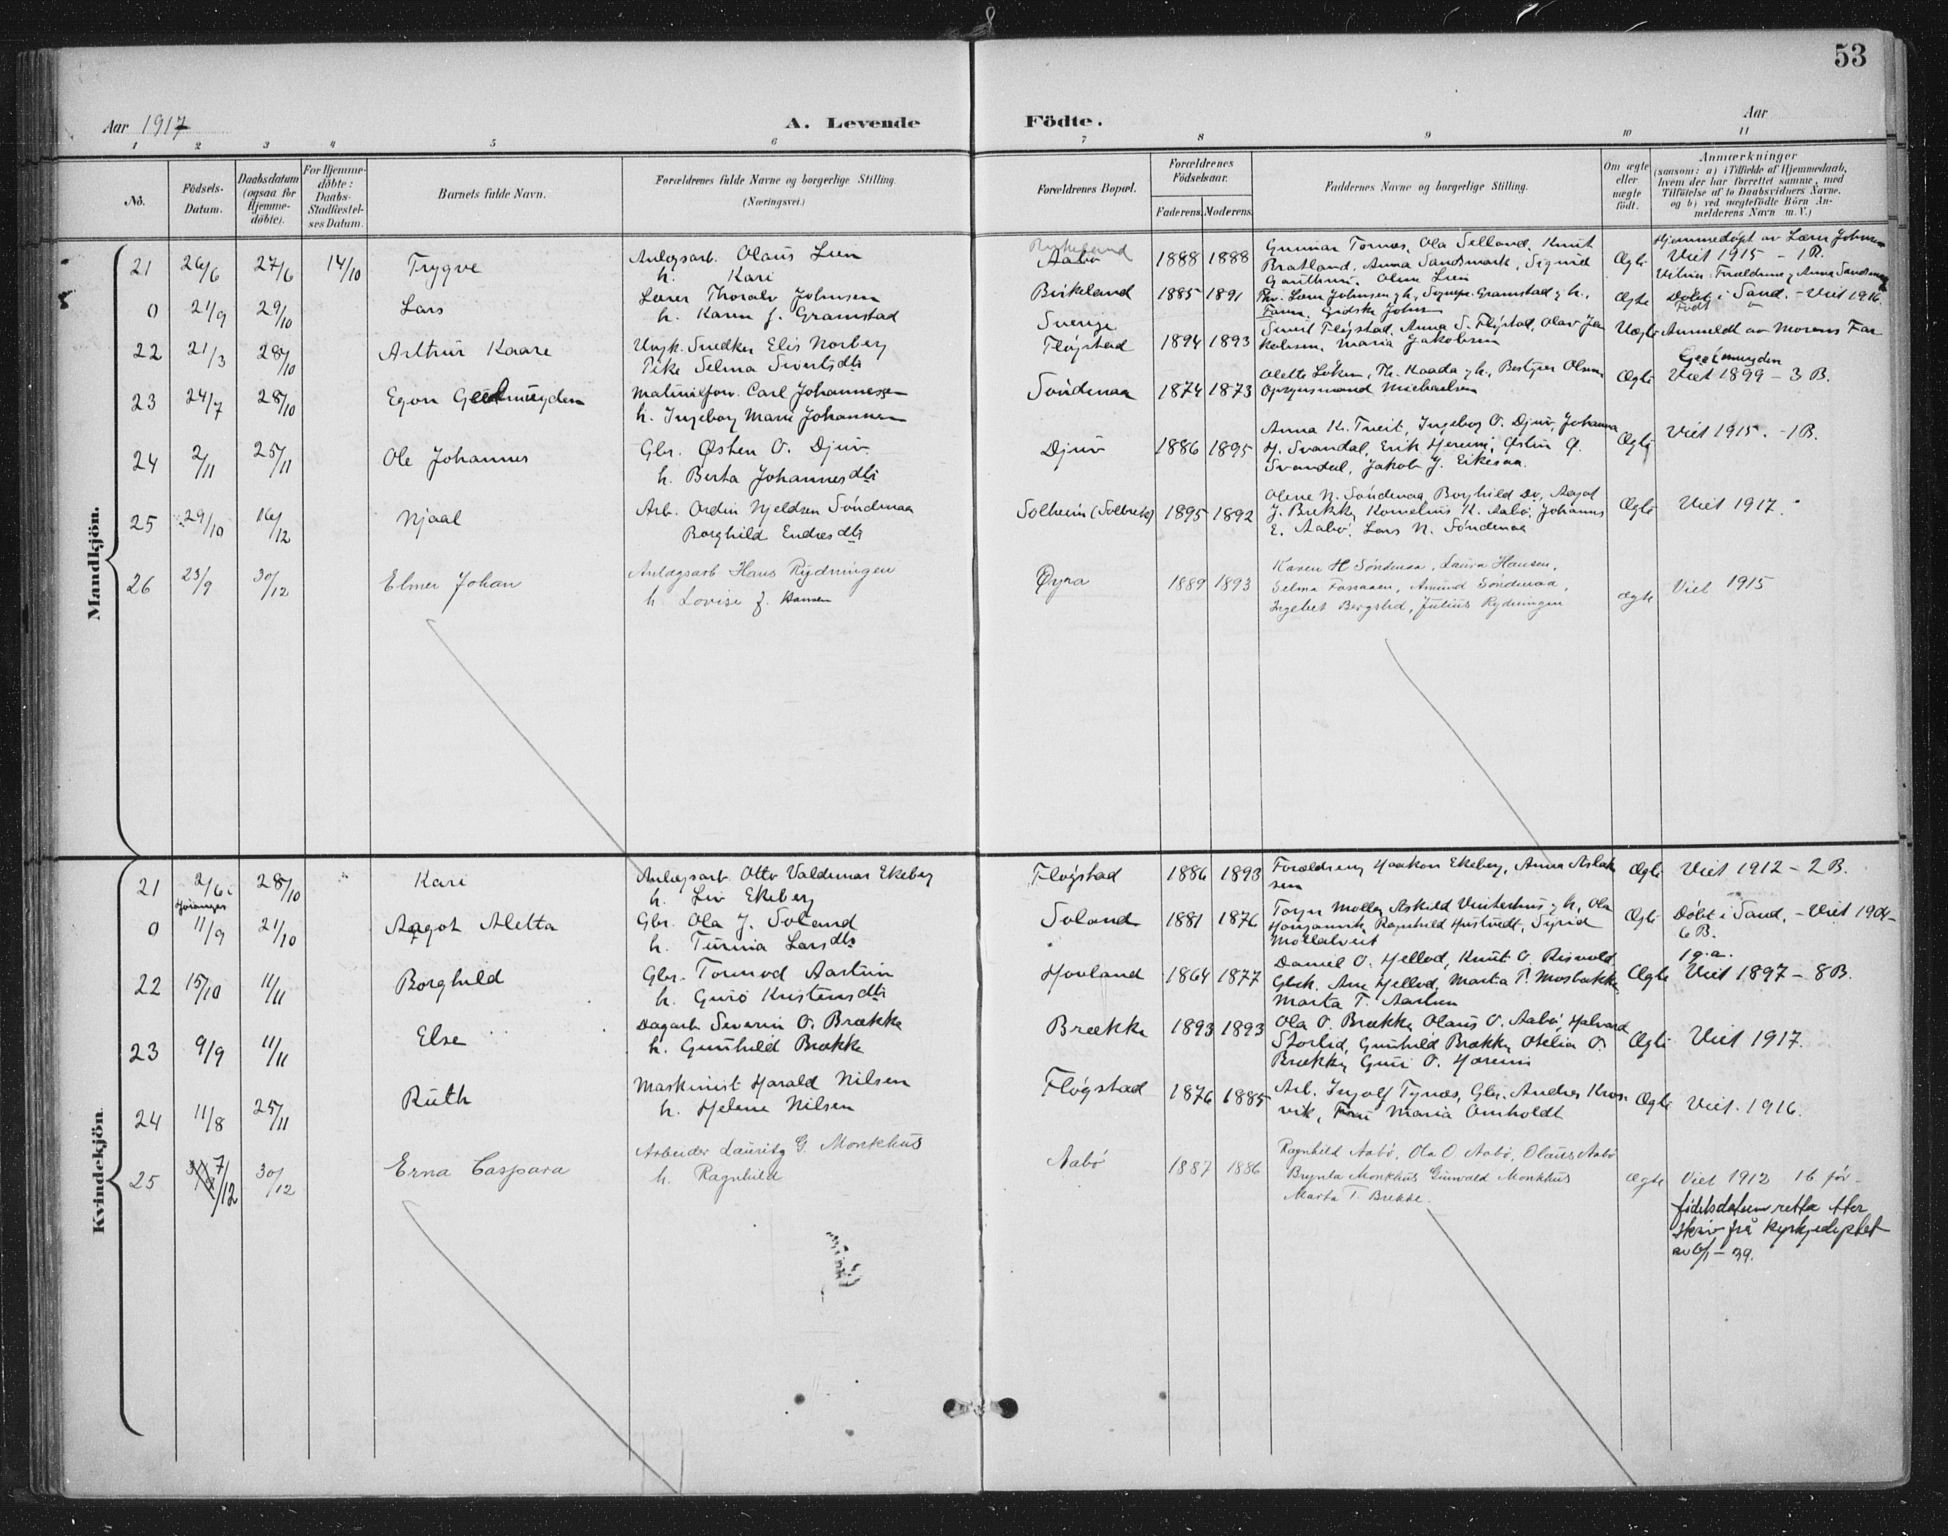 53
Aar 1917
A. Levende
Födte.
Aar
1 2 3 4 5 6 7 8 9 10 11
No.
Födsels-Datum.
Daabsdatum (ogsaa for Hjemme-döbte).
For Hjemme-döbte: Daabs-Stadfæstel-ses Datum.
Barnets fulde Navn.
Forældrenes fulde Navne og borgerlige Stilling.
(Næringsvei.)
Forældrenes Bopæl.
Forældrenes Födselsaar.
Faderens. Moderens.
Faddernes Navne og borgerlige Stilling.
Om ægte eller uægte födt.
Anmærkninger
(saasom: a) i Tilfælde af Hjemmedaab,
hvem der har forrettet samme, med
Tilföielse af to Daabsvidners Navne.
og b) ved uægtefödte Börn An-
melderens Navn m. V.)
Mandkjön.
21 26/6 27/6 14/10 Trygve
Anlægsarb. Olaus Lien
h. Kari
Aabø 1888 1888
Gunnar Tornes, Ola Selland, Knut
Bratland, Anna Sandsmark, Sigurd
Olina Lien
Ægte
Hjemmedøpt av Lærer Johnsen
Viet 1915 - 1 B.
0 21/9 29/10 Lars
Lærer Thoralv Johnsen
h. Karen f. Gramstad
Birkeland 1885 1891
Ægte
Døbt i Sand. - Viet 1916.
Født
22 21/3 28/10 Arthur Kaare
Ungk. Snedker Elis Norberg
Pike Selma Sivertsdtr
Sverige
Fløgstad 1894 1893
Sivert Fløgstad, Anna S. Fløgstad, Olav Ja-
kobsen, Maria Jakobsen
Uægte Anmeldt av Morens Far
23 24/7 28/10 Egon Geelmuyden
Materialforv. Carl Johannessen
h. Ingeborg Marie Johannesen
Søndenaa 1874 1873
Olette Løken, Th. Kaada og h., Bestyrer Olsen,
Opsynsmand Michaelsen
Ægte
Geelmuyden
Viet 1899 - 3 B.
24 2/11 25/11 Ole Johannes
Gbr. Østen O. Djuv
h. Berta Johannesdtr
Djuv 1886 1895
Anna K. Tveit, Ingeborg O. Djuv, Johanna
H. Svandal, Erik Hereim, Østen Ø.
Svandal, Jakob J. Eikesaa.
Ægte Viet 1915. - 1 B.
25 29/10 16/12 Njaal
Arb. Ordin Njeldsen Søndenaa
Borghild Endresdtr
Solheim (Solbrekk) 1895 1892
Olene N. Søndenaa, Borghild Do, Aagot
J. Brekke, Kornelius K. Aabø, Johannes
E. Aabø, Lars N. Søndenaa
Ægte Viet 1917.
26 23/9 30/12 Elmer Johan
Anlægsarb Hans Rydningen
h. Lovise f. Hansen
Øyra 1889 1893
Karen H Søndenaa, Laura Hansen,
Selma Fossaaen, Amund Søndenaa,
Ingebet Bergslid, Julius Rydningen
Ægte Viet 1915
Kvindekjön.
21 2/6 i 28/10 Kari
Anlægsarb. Otto Valdemar Ekeberg
h. Liv Ekeberg
Fløgstad 1886 1893
Forældrene, Haakon Ekeberg, Anna Aslak-
sen
Ægte Viet 1912 - 2 B.
0 11/9 21/10 Aagot Aletta
Gbr. Ola J. Soland
h. Turina Larsdtr
Soland 1881 1876
Ægte Døbt i Sand. - Viet 190
6 B.
22 15/10 11/11 Borghild
Gbr. Tormod Aartun
h. Guro Kristensdtr
Hovland 1864 1877
Daniel O. Hellod, Knut O. Risvold
Marta T. Aartun
Ægte Viet 1897 - 8 B.
23 9/9 11/11 Else
Dagarb. Severin O. Brække
h. Gunhild Brække
Brække 1893 1893
Ola O. Brække, Olaus O. Aabø, Halvard
Storlid, Gunhild Brække, Otelia O.
Brække, Guri O. Hareim
Ægte Viet 1917.
24 11/8 25/11 Ruth
Maskinist Harald Nilsen
h. Helene Nilsen
Fløgstad 1876 1885
Arb. Ingolf Tynæs, Gbr. Andres Kros-
vik, Frau Maria Omholdt
Ægte Viet. 1916.
25 7/12 30/12 Erna Caspara
Arbeider Lauritz G. Monkhus
h. Ragnhild
Aabø 1887 1886
Ragnhild Aabø, Ola O Aabø, Olaus Aabø
Brynla Monkhus Gunvald Monkhus
Marta T. Brekke.
Ægte Viet 1912 1 b. før
fødelsdatum retta etter
skriv frå kyrkjedeptet
av 6/1 - 39.